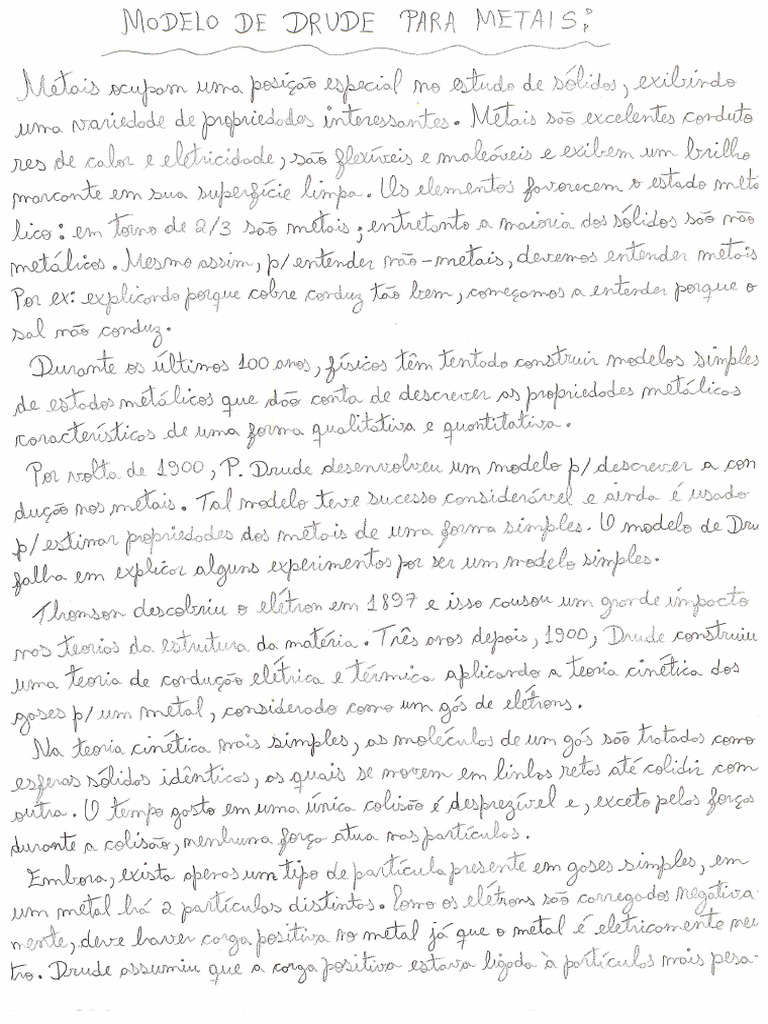 MODELO DE DRUDE PARA METAIS:
Metais ocupam uma posição especial no estudo de sólidos, exibindo
uma variedade de propriedades interessantes. Metais são excelentes conduto
res de calor e eletricidade, são flexíveis e maleáveis e exibem um brilho
marcante em sua superfície limpa. Os elementos favorecem o estado metá
lico: em torno de 2/3 são metais; entretanto a maioria dos sólidos são não
metálicos. Mesmo assim, p/ entender não-metais, devemos entender metais
Por ex: explicando porque cobre conduz tão bem, começamos a entender porque o
sal não conduz.
Durante os últimos 100 anos, físicos têm tentado construir modelos simples
de estados metálicos que dão conta de descrever as propriedades metálicas
características de uma forma qualitativa e quantitativa.
Por volta de 1900, P. Drude desenvolveu um modelo p/ descrever a con
dução nos metais. Tal modelo teve sucesso considerável e ainda é usado
p/ estimar propriedades dos metais de uma forma simples. O modelo de Dru
falha em explicar alguns experimentos por ser um modelo simples.
Thomson descobriu o elétron em 1897 e isso causou um grande impacto
nas teorias da estrutura da matéria. Três anos depois, 1900, Drude construiu
uma teoria de condução elétrica e térmica aplicando a teoria cinética dos
gases p/ um metal, considerado como um gás de elétrons.
Na teoria cinética mais simples, as moléculas de um gás são tratadas como
esferas sólidas idênticas, as quais se movem em linhas retas até colidir com
outra. O tempo gasto em uma única colisão é desprezível e, exceto pelas forças
durante a colisão, nenhuma força atua nas partículas.
Embora, exista apenas um tipo de partícula presente em gases simples, em
um metal há 2 partículas distintas. Como os elétrons são carregados negativa-
mente, deve haver carga positiva no metal já que o metal é eletricamente neu
tro. Drude assumiu que a carga positiva estava ligada à partículas mais pesa-